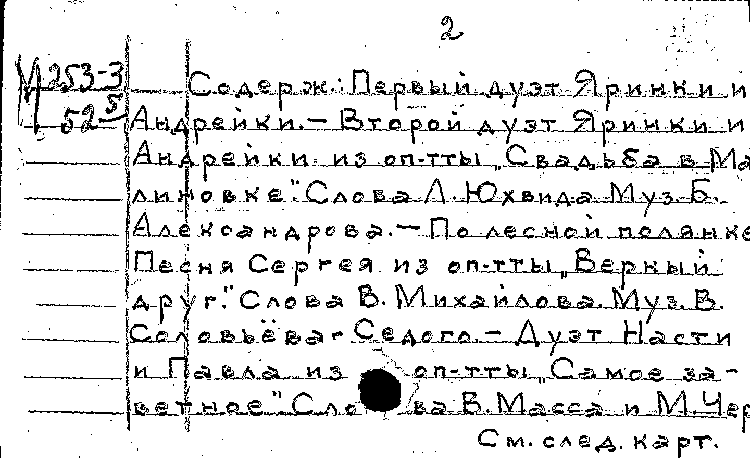 2
М253-3 Содерж.: Первый дуэт Яринки и
52-5 Андрейки. – Второй дуэт Яринки и
Андрейки из оп-тты „Свадьба в Ма
линовке". Слова Л. Юхвида Муз. Б.
Александрова. – По лесной полянке
Песня Сергея из оп-тты „Верный
друг." Слова В. Михайлова. Муз. В.
Соловьёва-Седого. – Дуэт Насти
и Павла из оп-тты „Самое за-
ветное" Слова В. Масса и М. Чер
См. след. карт.